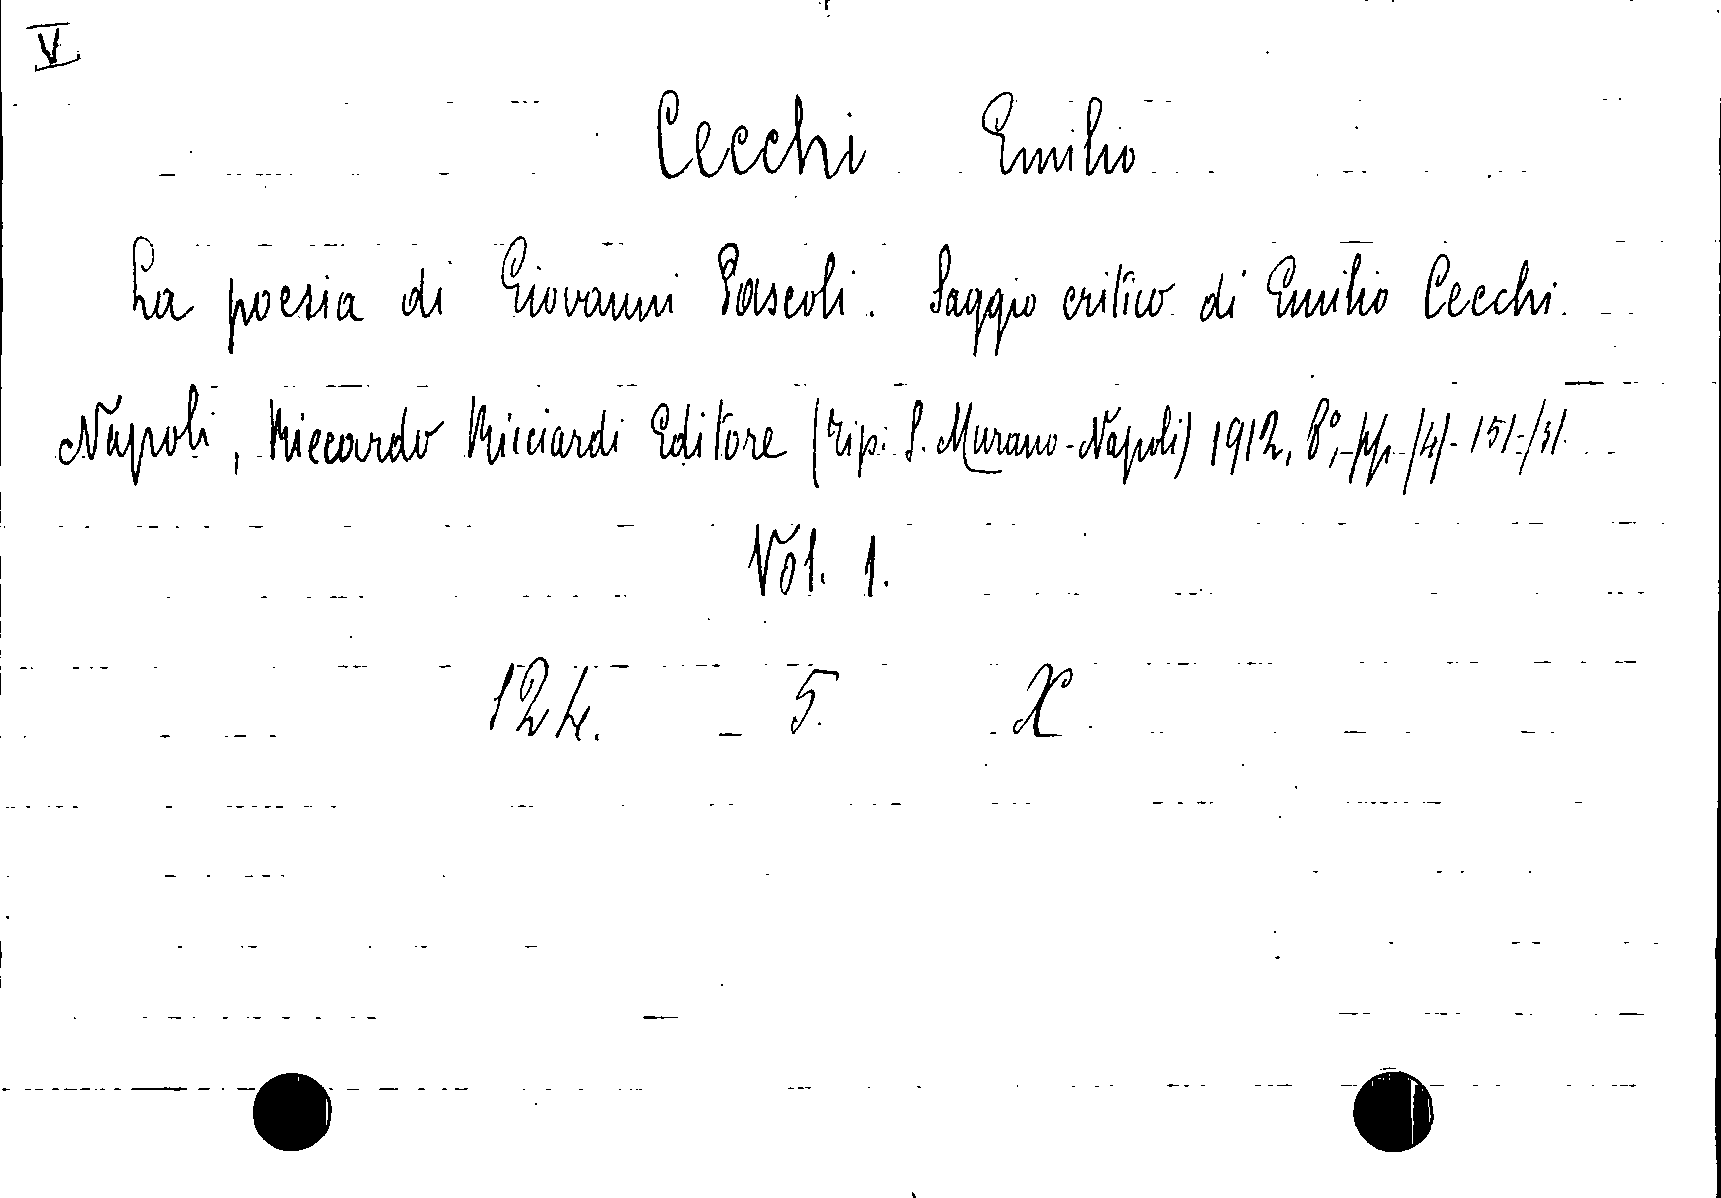 V
Cecchi Emilio
La poesia di Giovanni Pascoli. Saggio critico di Emilio Cecchi.
Napoli, Riccardo Ricciardi Editore (Tip. S. Murano-Napoli) 1912, 8°, pp. /4/-151-/3/.
Vol. 1.
124. 5. X